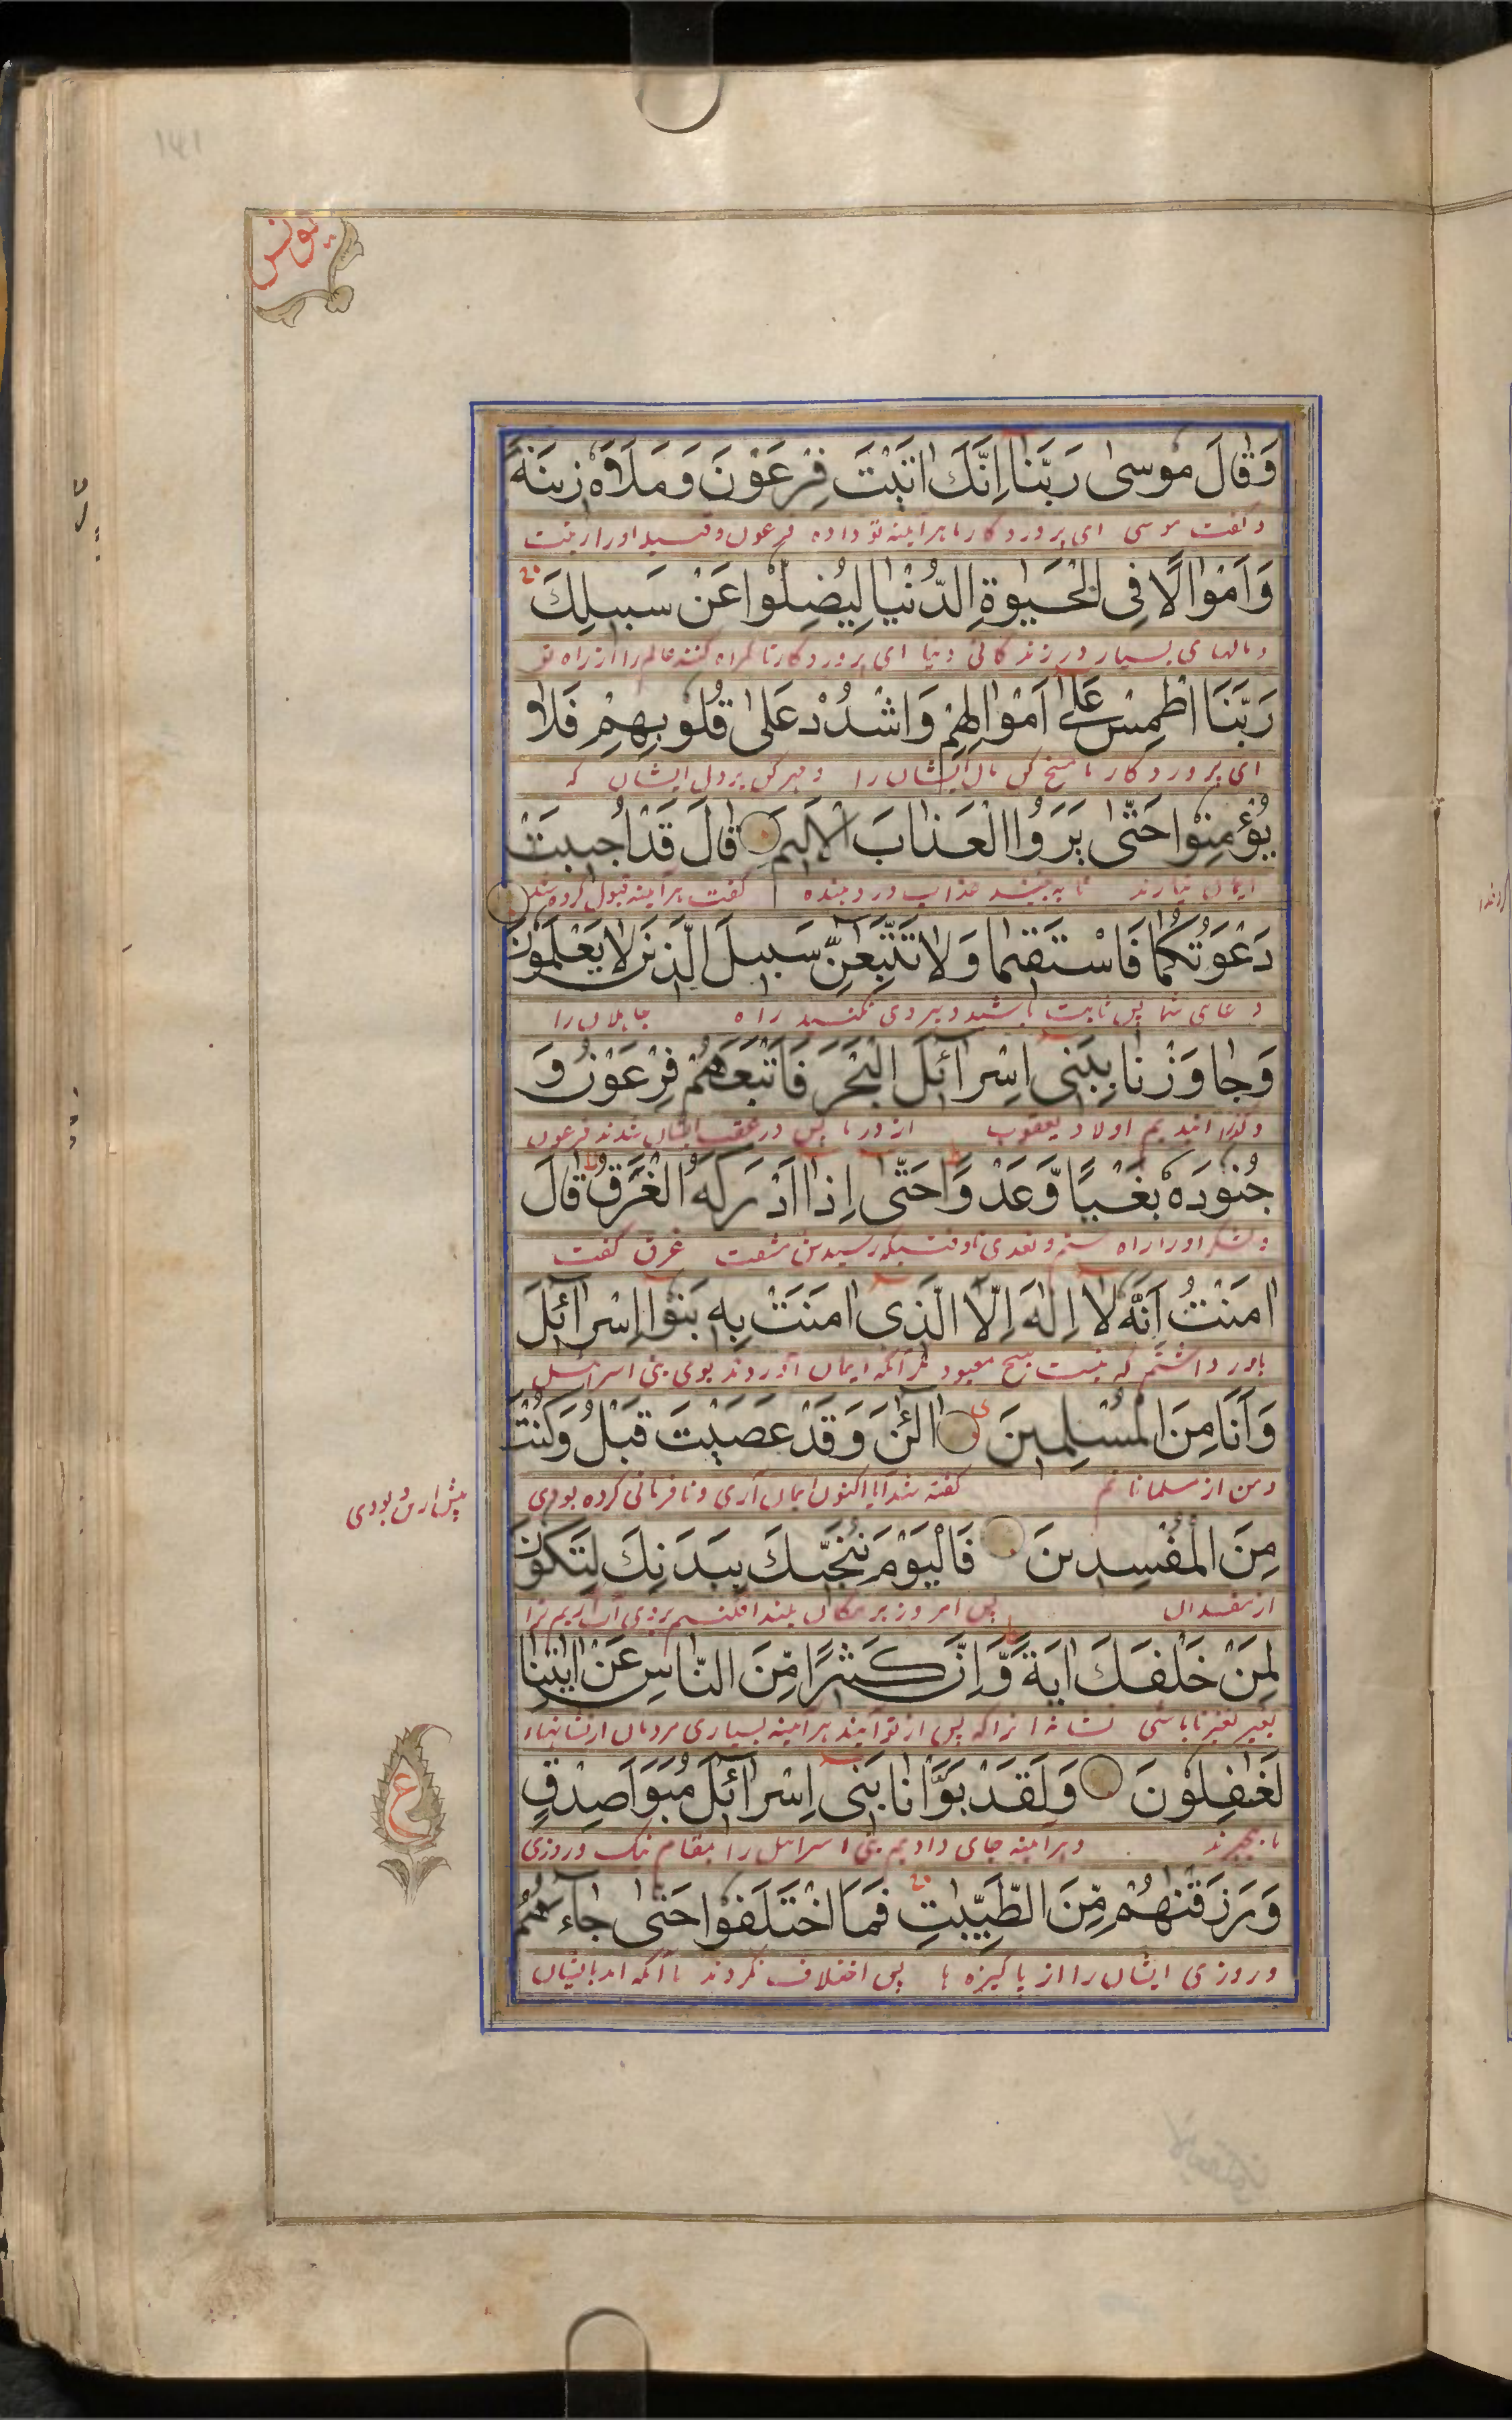 141
یونس
وَقَالَ مُوسٰى رَبَّنَا اِنَّكَ اٰتَيْتَ فِرْعَوْنَ وَمَلَاَهٗ زِينَةً
و گفت موسی ای پروردگار ما هر آینه تو داده فرعون و قوم او را زینت
وَاَمْوَالًا فِى الْحَيٰوةِ الدُّنْيَا لِيُضِلُّوا عَنْ سَبِيلِكَ
و مالهای بسیار در زندگانی دنیا ای پروردگار تا گمراه کنند عالم را از راه تو
رَبَّنَا اطْمِسْ عَلٰى اَمْوَالِهِمْ وَاشْدُدْ عَلٰى قُلُوبِهِمْ فَلَا
ای پروردگار ما مسخ کن مال ایشان را و مهر کن بر دل ایشان که
يُؤْمِنُوا حَتّٰى يَرَوُا الْعَذَابَ الْاَلِيمَ قَالَ قَدْ اُجِيبَتْ
ایمان نیارند تا به بینند عذاب درد دهنده گفت هر آینه قبول کرده شد
دَعْوَتُكُمَا فَاسْتَقِيمَا وَلَا تَتَّبِعٰنِّ سَبِيلَ الَّذِينَ لَا يَعْلَمُونَ
دعای شما پس ثابت باشید و پیروی نکنید راه جاهلان را
وَجَاوَزْنَا بِبَنِى اِسْرَائِلَ الْبَحْرَ فَاَتْبَعَهُمْ فِرْعَوْنُ وَ
و گذرانیدیم اولاد یعقوب از دریا پس در عقب ایشان شدند فرعون
جُنُودُهٗ بَغْيًا وَّعَدْوًا حَتّٰى اِذَا اَدْرَكَهُ الْغَرَقُ قَالَ
و لشکر او از راه ستم و تعدی تا وقتیکه رسیدش مشقت غرق گفت
اٰمَنْتُ اَنَّهٗ لَا اِلٰهَ اِلَّا الَّذِى اٰمَنَتْ بِهٖ بَنُوا اِسْرَائِلَ
باور داشتم که نیست هیچ معبود مگر آنکه ایمان آوردند بوی بنی اسرائیل
وَاَنَا مِنَ الْمُسْلِمِينَ آلْئٰنَ وَقَدْ عَصَيْتَ قَبْلُ وَكُنْتَ
و من از مسلمانانم گفته شد آیا اکنون ایمان آری و نافرمانی کرده بودی
پیش ازین و بودی
مِنَ الْمُفْسِدِينَ فَالْيَوْمَ نُنَجِّيكَ بِبَدَنِكَ لِتَكُونَ
از مفسدان پس امروز بر مکان بلند افکنیم
لِمَنْ خَلْفَكَ اٰيَةً وَّاِنَّ كَثِيرًا مِّنَ النَّاسِ عَنْ اٰيٰتِنَا
تا باشی نشانه آنرا که پس از تو آیند هر آینه بسیاری مردمان از نشانهاء
لَغٰفِلُونَ وَلَقَدْ بَوَّاْنَا بَنِى اِسْرَائِلَ مُبَوَّاَ صِدْقٍ
ما بیخبرند و هر آینه جای دادیم بنی اسرائیل را بمقام نیک و روزی
ع
وَرَزَقْنٰهُمْ مِّنَ الطَّيِّبٰتِ فَمَا اخْتَلَفُوا حَتّٰى جَاءَهُمُ
و روزی ایشان را از پاکیزه ها پس اختلاف نکردند تا آنکه آمد بایشان